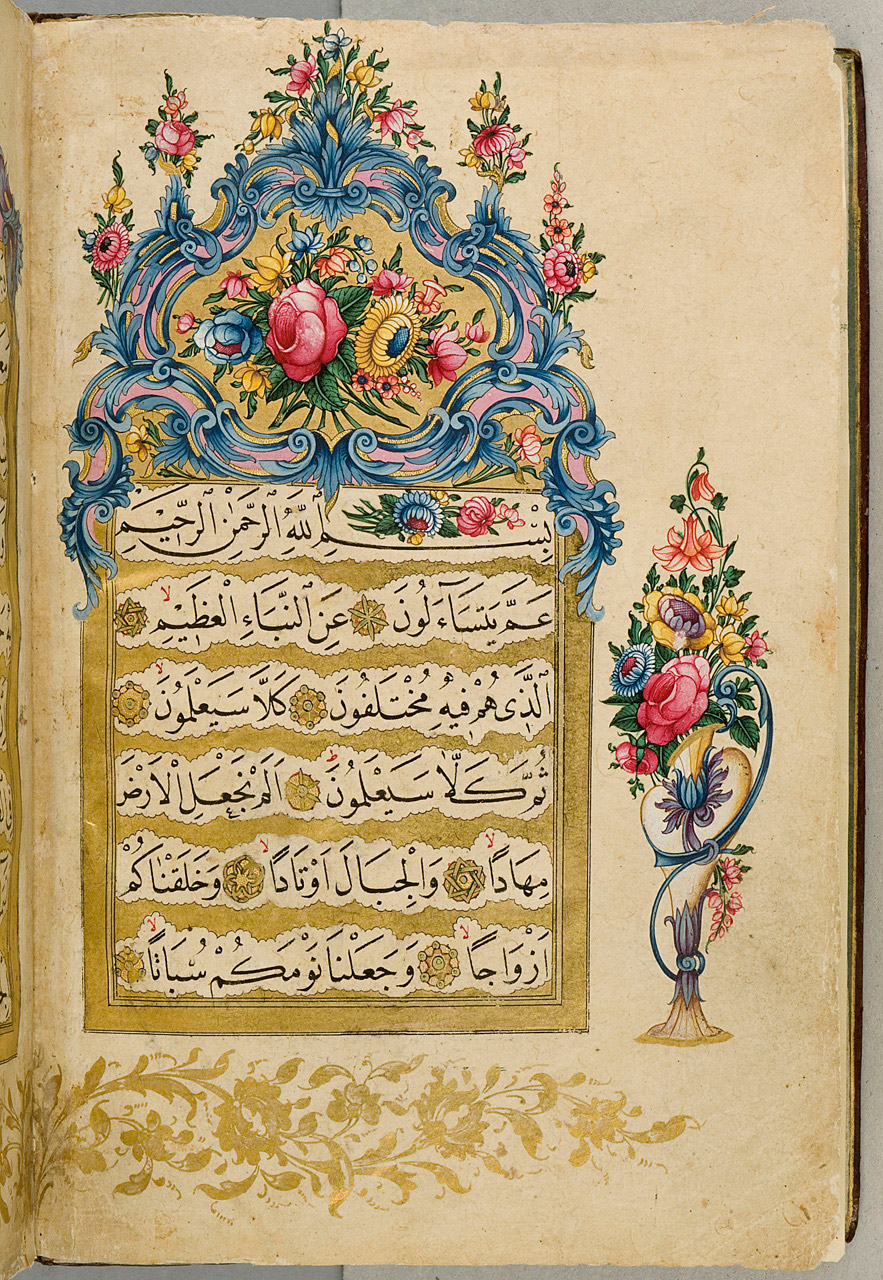 بِسْمِ اللّٰهِ الرَّحْمٰنِ الرَّحٖيمِ
عَمَّ يَتَسَٓاءَلُونَ عَنِ النَّبَاءِ الْعَظٖيمِ ۙ
اَلَّذٖى هُمْ فٖيهِ مُخْتَلِفُونَ كَلَّا سَيَعْلَمُونَ ۙ
ثُمَّ كَلَّا سَيَعْلَمُونَ ۜ اَلَمْ نَجْعَلِ الْاَرْضَ
مِهَادًا ۙ وَالْجِبَالَ اَوْتَادًا ۙ وَخَلَقْنَاكُمْ
اَزْوَاجًا ۙ وَجَعَلْنَا نَوْمَكُمْ سُبَاتًا ۙ